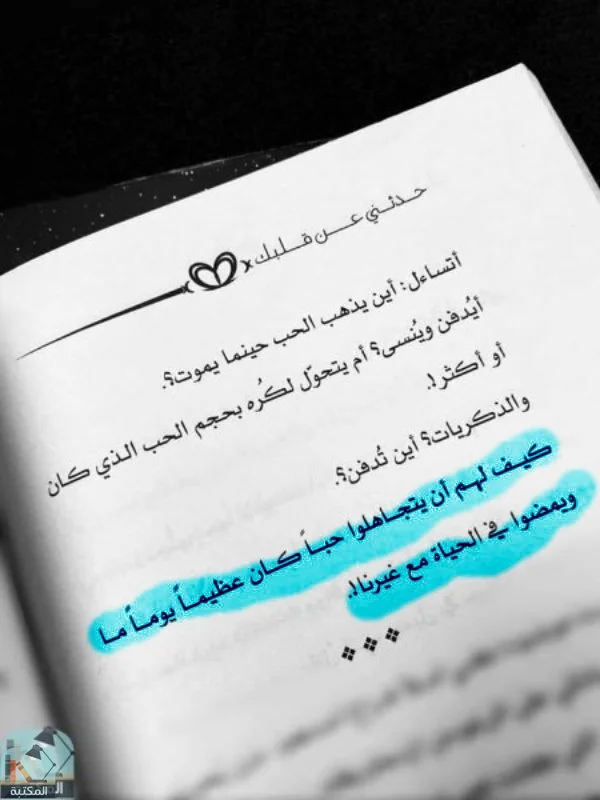 حدثني عن قلبك
أتساءل: أين يذهب الحب حينما يموت؟.
أيُدفن ويُنسى؟ أم يتحوّل لكُره بحجم الحب الذي كان
أو أكثر!.
والذكريات؟ أين تُدفن؟.
كيف لهم أن يتجاهلوا حباً كان عظيماً يوماً ما
ويمضوا في الحياة مع غيرنا!.
المكتبة